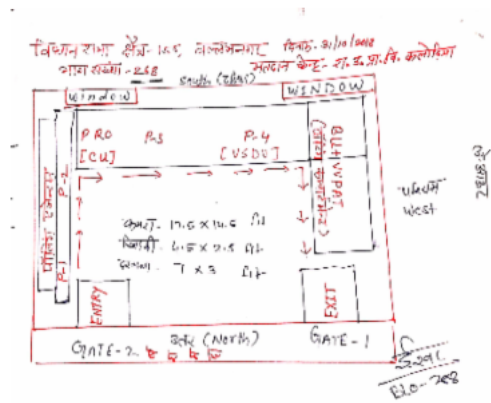 विधान सभा क्षेत्र- 155, वल्लभनगर दिनांक- 31/10/2018
भाग संख्या - 268 मतदान केन्द्र- रा. उ. प्रा. वि.
South (दक्षिण)
Window WINDOW
PRO P-3 P-4
[CU] [VSDU]
BU+VVPAT
P-2
P-1
पोलिंग एजेन्ट
पश्चिम
West
कमरा - 17.5 x 14.5 फिट
खिड़की - 4.5 x 2.5 फिट
दरवाजा - 7 x 3 फिट
ENTRY EXIT
GATE-2 उत्तर (North) GATE-1
BLO-268